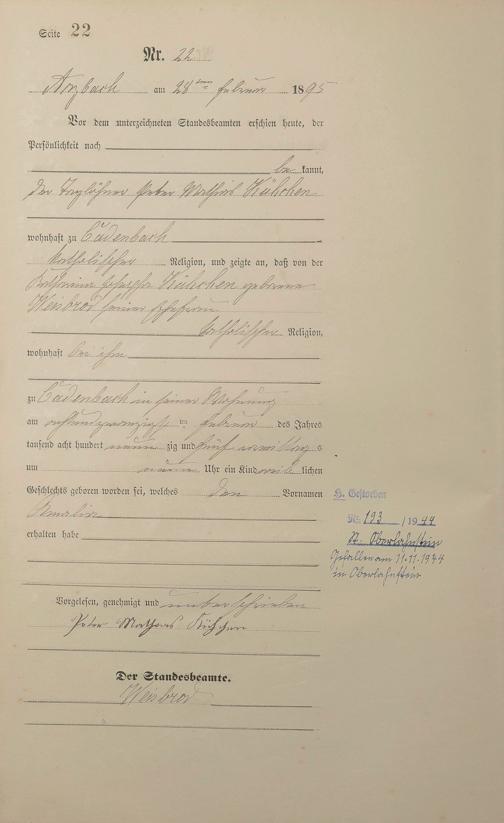 Seite 22
Nr. 22
Arzbach am 28ten Februar 1895
Vor dem unterzeichneten Standesbeamten erschien heute, der
Persönlichkeit nach
be kannt,
der Taglöhner Peter Mathias Kühchen
wohnhaft zu Cadenbach
katholischer Religion, und zeigte an, daß von der
Katharina Kühchen geborene
Weisbrod seiner Ehefrau
katholischer Religion,
wohnhaft bei ihm
zu Cadenbach in seiner Wohnung
am achtundzwanzigsten Februar des Jahres
tausend acht hundert neun zig und fünf Vormittags
um neun Uhr ein Kind weib lichen
Geschlechts geboren worden sei, welches den Vornamen
Amalia
erhalten habe
H. Gestorben
Nr. 193 / 1944
St. Oberlahnstein
Gefallen am 11.11.1944
in Oberlahnstein
Vorgelesen, genehmigt und unterschrieben
Peter Mathias Kühchen
Der Standesbeamte.
Weisbrod